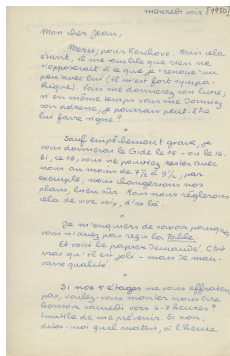 mercredi soir [1950]
Mon cher Jean,
Merci, pour Kerchove. Mais cela
étant, il me semble que rien ne
s'opposerait à ce que je "renoue" un
peu avec lui (il m'est fort sympa-
thique). Vous me donnerez son livre,
si en même temps vous me donniez
son adresse, je pourrais peut-être
lui faire signe ?
*
Sauf empêchement grave, je
vous donnerai le Gide le 15 - ou le 16.
Si, ce 16, vous ne pouviez rester avec
nous au moins de 7½ à 9½, par
exemple, nous changerions nos
plans, bien sûr. Mais nous réglerons
cela de vive voix, d'ici là.
*
Je m'enquiers de savoir pourquoi
vous n'avez pas reçu la Table.
Et voici le papier demandé. C'est
vrai qu'il est joli - mais de mau-
vaise qualité.
*
Si nos 5 étages ne vous effraient
pas, voulez-vous monter nous dire
bonsoir samedi vers 6-7 heures ?
Inutile de me prévenir. Si non,
dites-moi quel matin, à l'heure